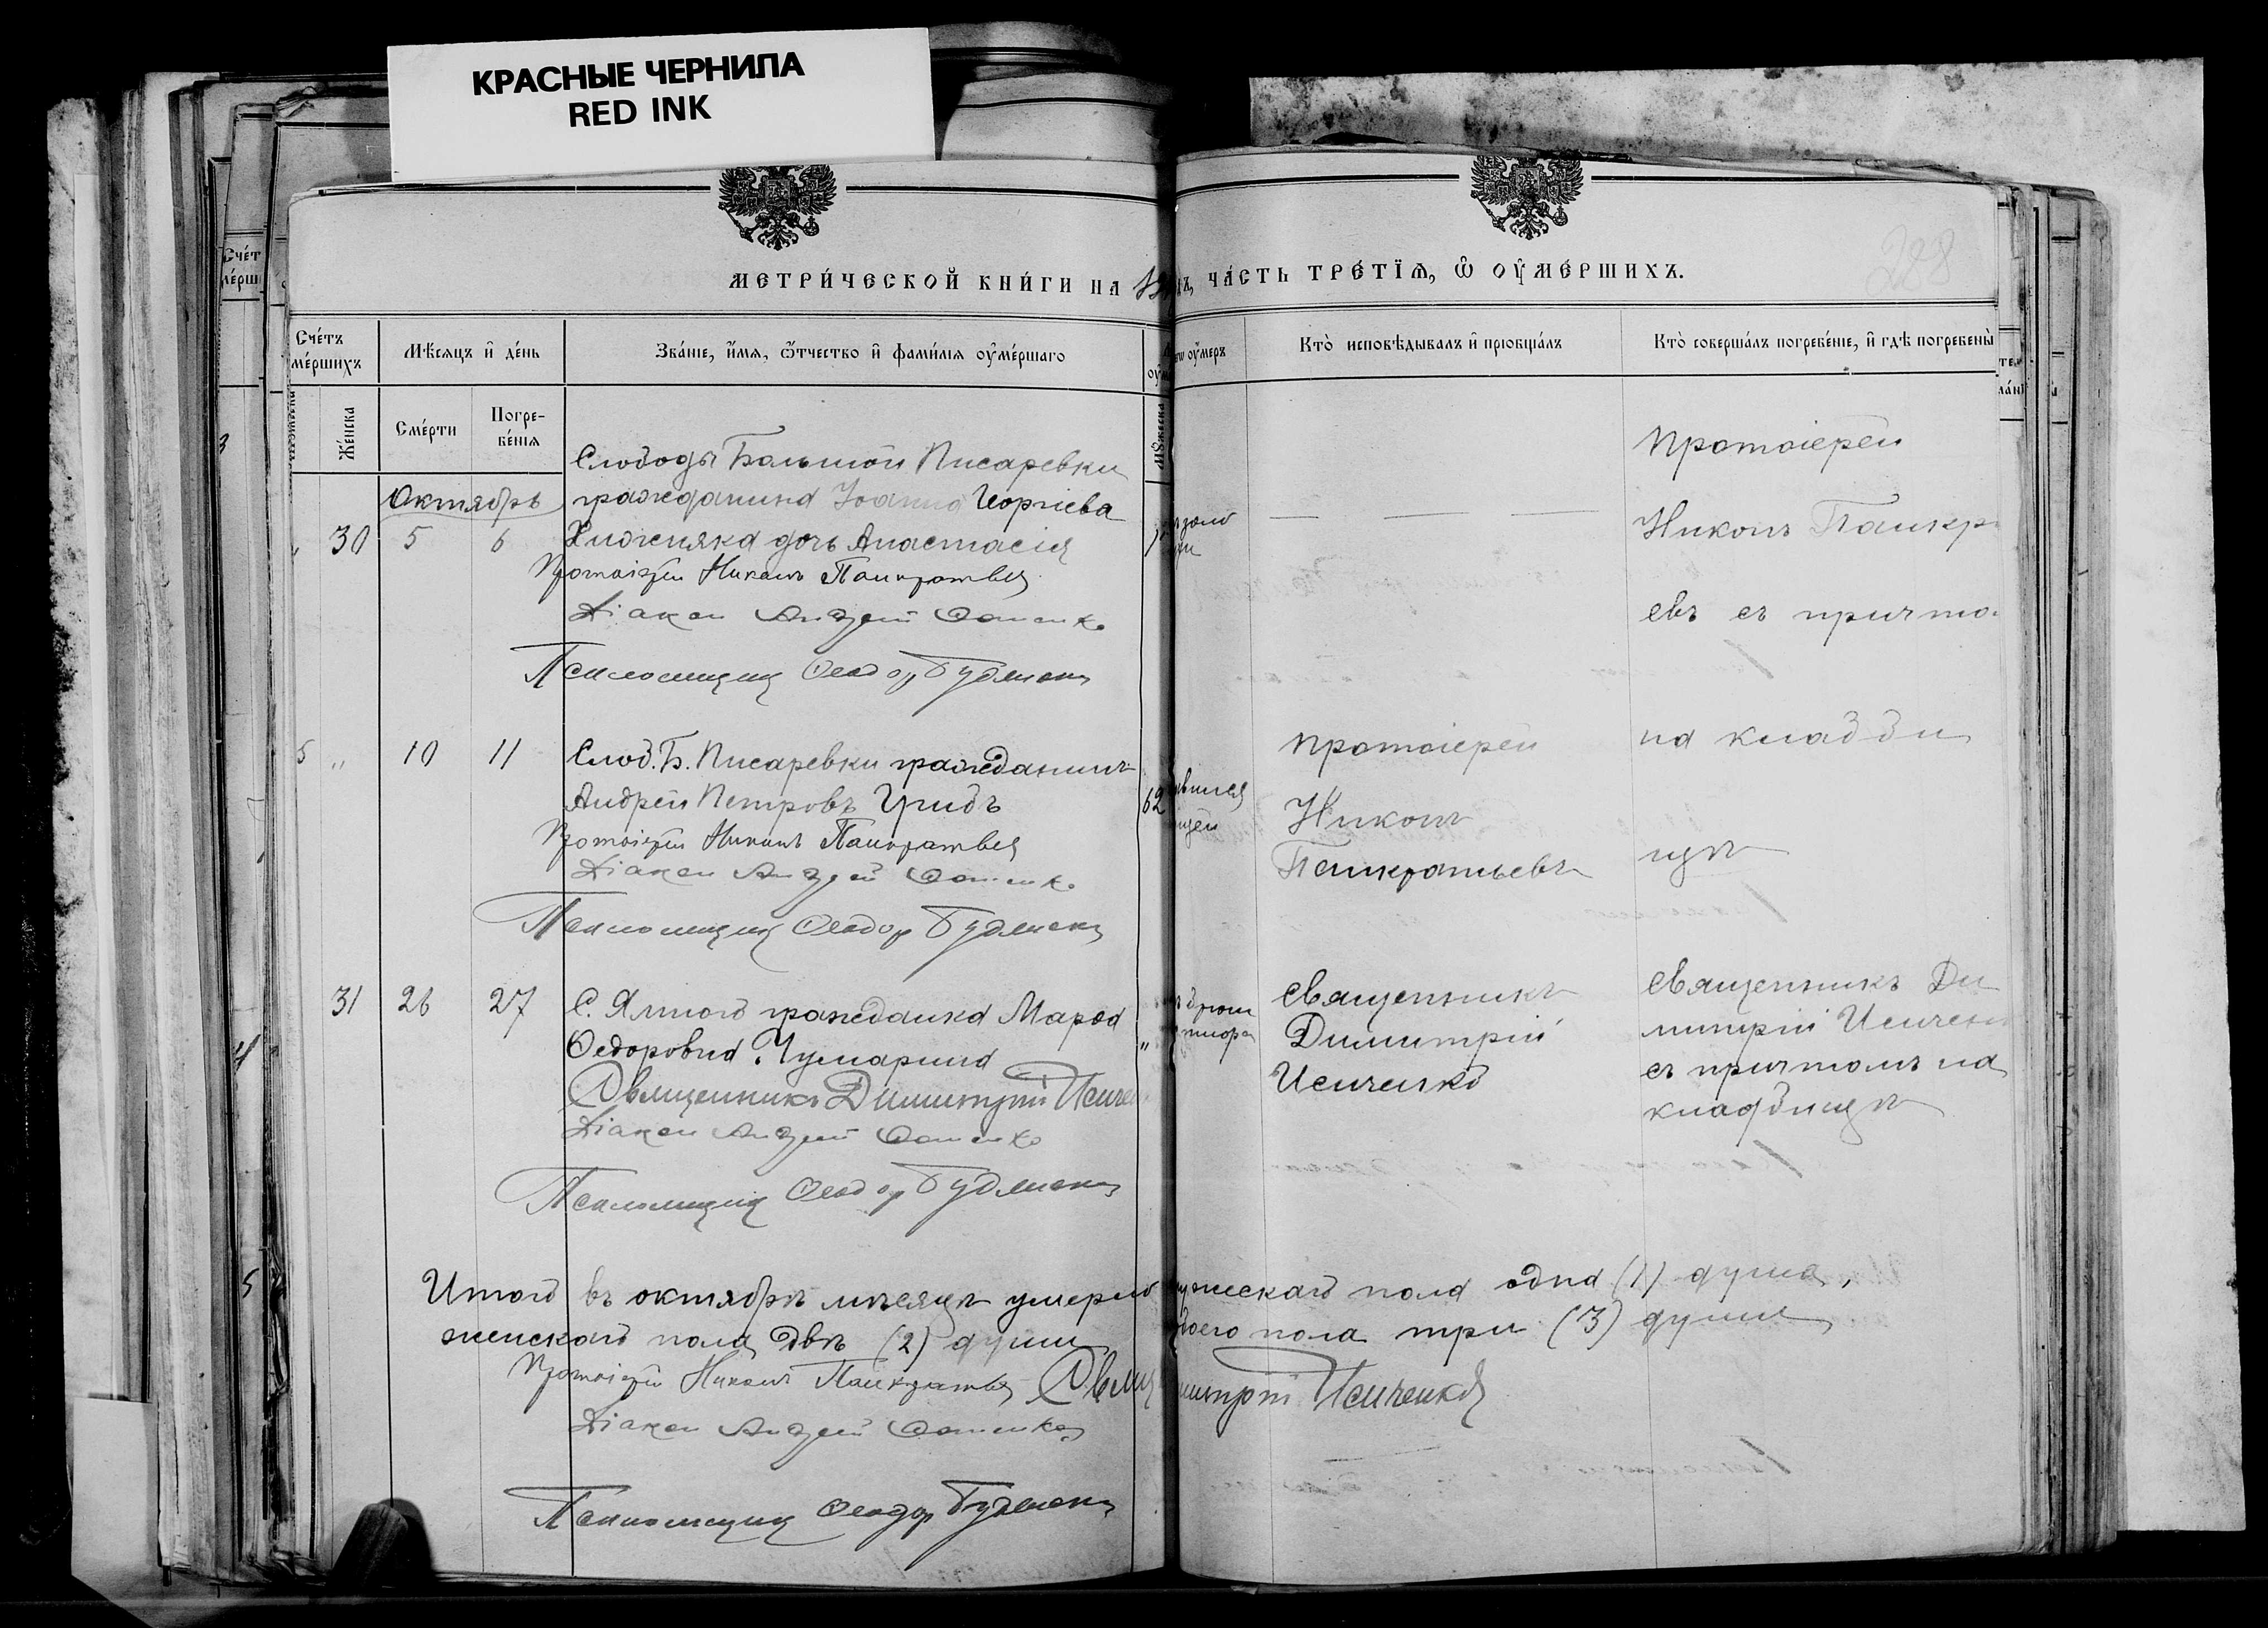 КРАСНЫЕ ЧЕРНИЛА
RED INK
МЕТРИ́ЧЕСКОЙ КНИ́ГИ НА
ЧА́СТЬ ТРЕ́ТЇѦ, Ѿ ОУ҆МЕ́РШИХЪ.
228
Сче́тъ
ме́ршихъ
Мѣ́сяцъ и҆ де́нь
Зва́нїе, и҆́мя, ѻ҆́тчество и҆ фами́лїя оу҆ме́ршаго
оу҆меръ
Кто̀ исповѣ́дывалъ и҆ прїобща́лъ
Кто̀ соверша́лъ погребе́нїе, и҆ гдѣ̀ погребены̀
Же́нска
Сме́рти
Погре-
бе́нїя
Октябрь
30 5 6
Слободы Большой Писаревки
гражданина Іоанна Георгіева
Хижняка дочь Анастасія
Протоіерей Никонъ Панкратьев
Діакон Андрей
Псаломщик Феодор
Протоіерей
Никонъ Панкр
евъ съ причто
5 „ 10 11
Слод. Б. Писаревки гражданинъ
Андрей Петровъ Гридъ
62
Протоіерей Никонъ Панкратьев
Діакон Андрей
Псаломщик Феодор
Протоіерей
Никонъ
Панкратьевъ
на кладби
щѣ
31 26 27
С. Ямного гражданка Марѳа
Ѳедоровна Чумарина
„
Священникъ Димитрій Исиче
Діакон Андрей
Псаломщик Феодор
Священникъ
Димитрій
Исиченко
Священникъ Ди
митрій Исиченк
съ причтомъ на
кладбищѣ
Итого въ октябрѣ мѣсяцѣ умерло мужескаго пола одна (1) душа,
женскаго пола двѣ (2) души обоего пола три (3) души
Протоіерей Никонъ Панкратьев Свящ Димитрій Исиченко
Діакон Андрей
Псаломщик Феодор